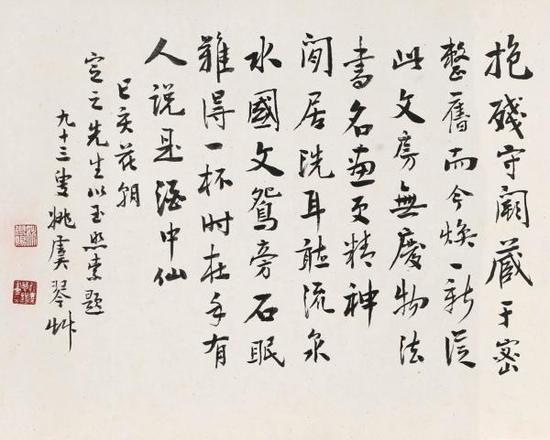 抱殘守闕藏于密
整舊而今煥一新從
此文房無廢物法
書名畫更精神
閒居洗耳聽流泉
水國文鴛旁石眠
難得一杯時在手有
人說是酒中仙
己亥花朝
定之先生以玉照索題
九十三叟姚虞琴艸